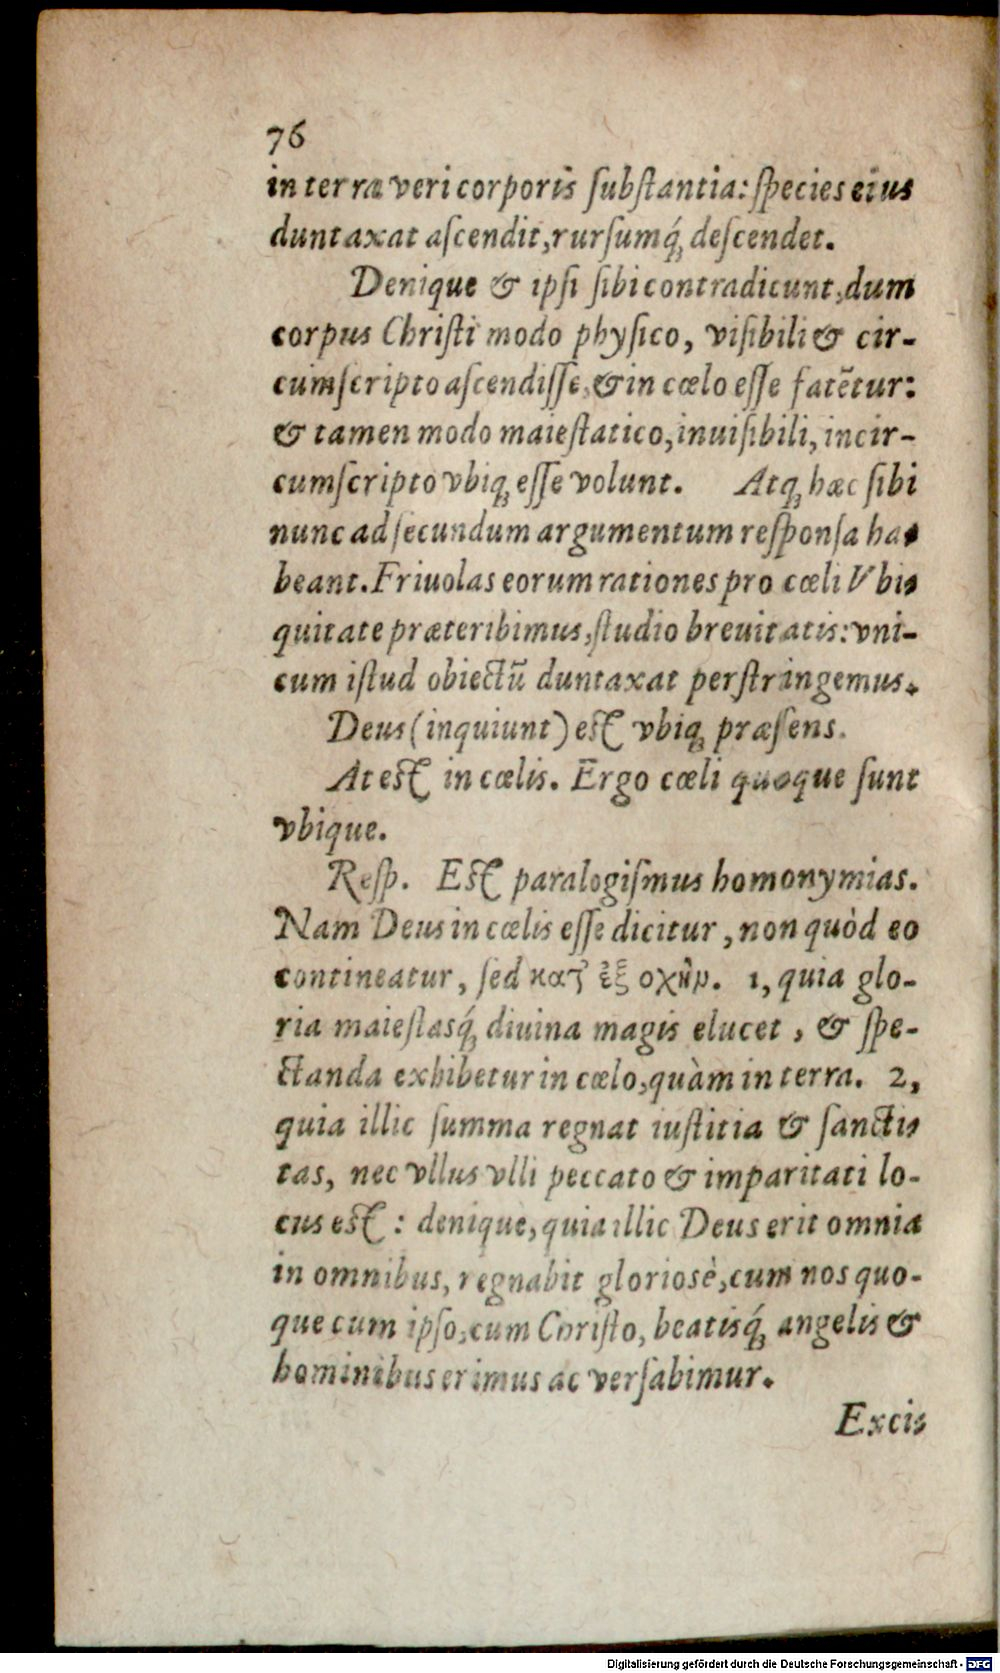 76
in terra veri corporis ſubſtantia: ſpecies eius
duntaxat aſcendit, rurſumq́ꝫ deſcendet.
Denique & ipſi ſibi contradicunt, dum
corpus Chriſti modo phyſico, viſibili & cir-
cumſcripto aſcendiſſe, & in cœlo eſſe fatẽtur:
& tamen modo maieſtatico, inuiſibili, incir-
cumſcripto vbiqꝫ eſſe volunt. Atqꝫ hæc ſibi
nunc ad ſecundum argumentum reſponſa ha-
beant. Friuolas eorum rationes pro cœli Vbi-
quitate præteribimus, ſtudio breuitatis: vni-
cum iſtud obiectũ duntaxat perſtringemus.
Deus (inquiunt) eſt vbiqꝫ præſens.
At eſt in cœlis. Ergo cœli quoque ſunt
vbique.
Reſp. Eſt paralogiſmus homonymias.
Nam Deus in cœlis eſſe dicitur, non quòd eo
contineatur, ſed κατ ἐξ οχὴν. 1, quia glo-
ria maieſtasq́ꝫ diuina magis elucet, & ſpe-
ctanda exhibetur in cœlo, quàm in terra. 2,
quia illic ſumma regnat iuſtitia & ſancti-
tas, nec vllus vlli peccato & imparitati lo-
cus eſt: denique, quia illic Deus erit omnia
in omnibus, regnabit glorioſè, cum nos quo-
que cum ipſo, cum Chriſto, beatisq́ꝫ angelis &
hominibus erimus ac verſabimur.
Exci-
Digitalisierung gefördert durch die Deutsche Forschungsgemeinschaft - DFG